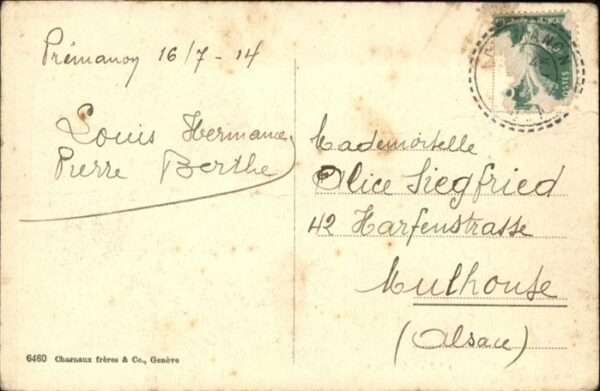 Prémanoy 16/7 - 14
Louis Hermance
Pierre Berthe
Mademoiselle
Alice Siegfried
42 Harfenstrasse
Mulhouse
(Alsace)
6460 Charnaux frères & Co., Genève
POSTES